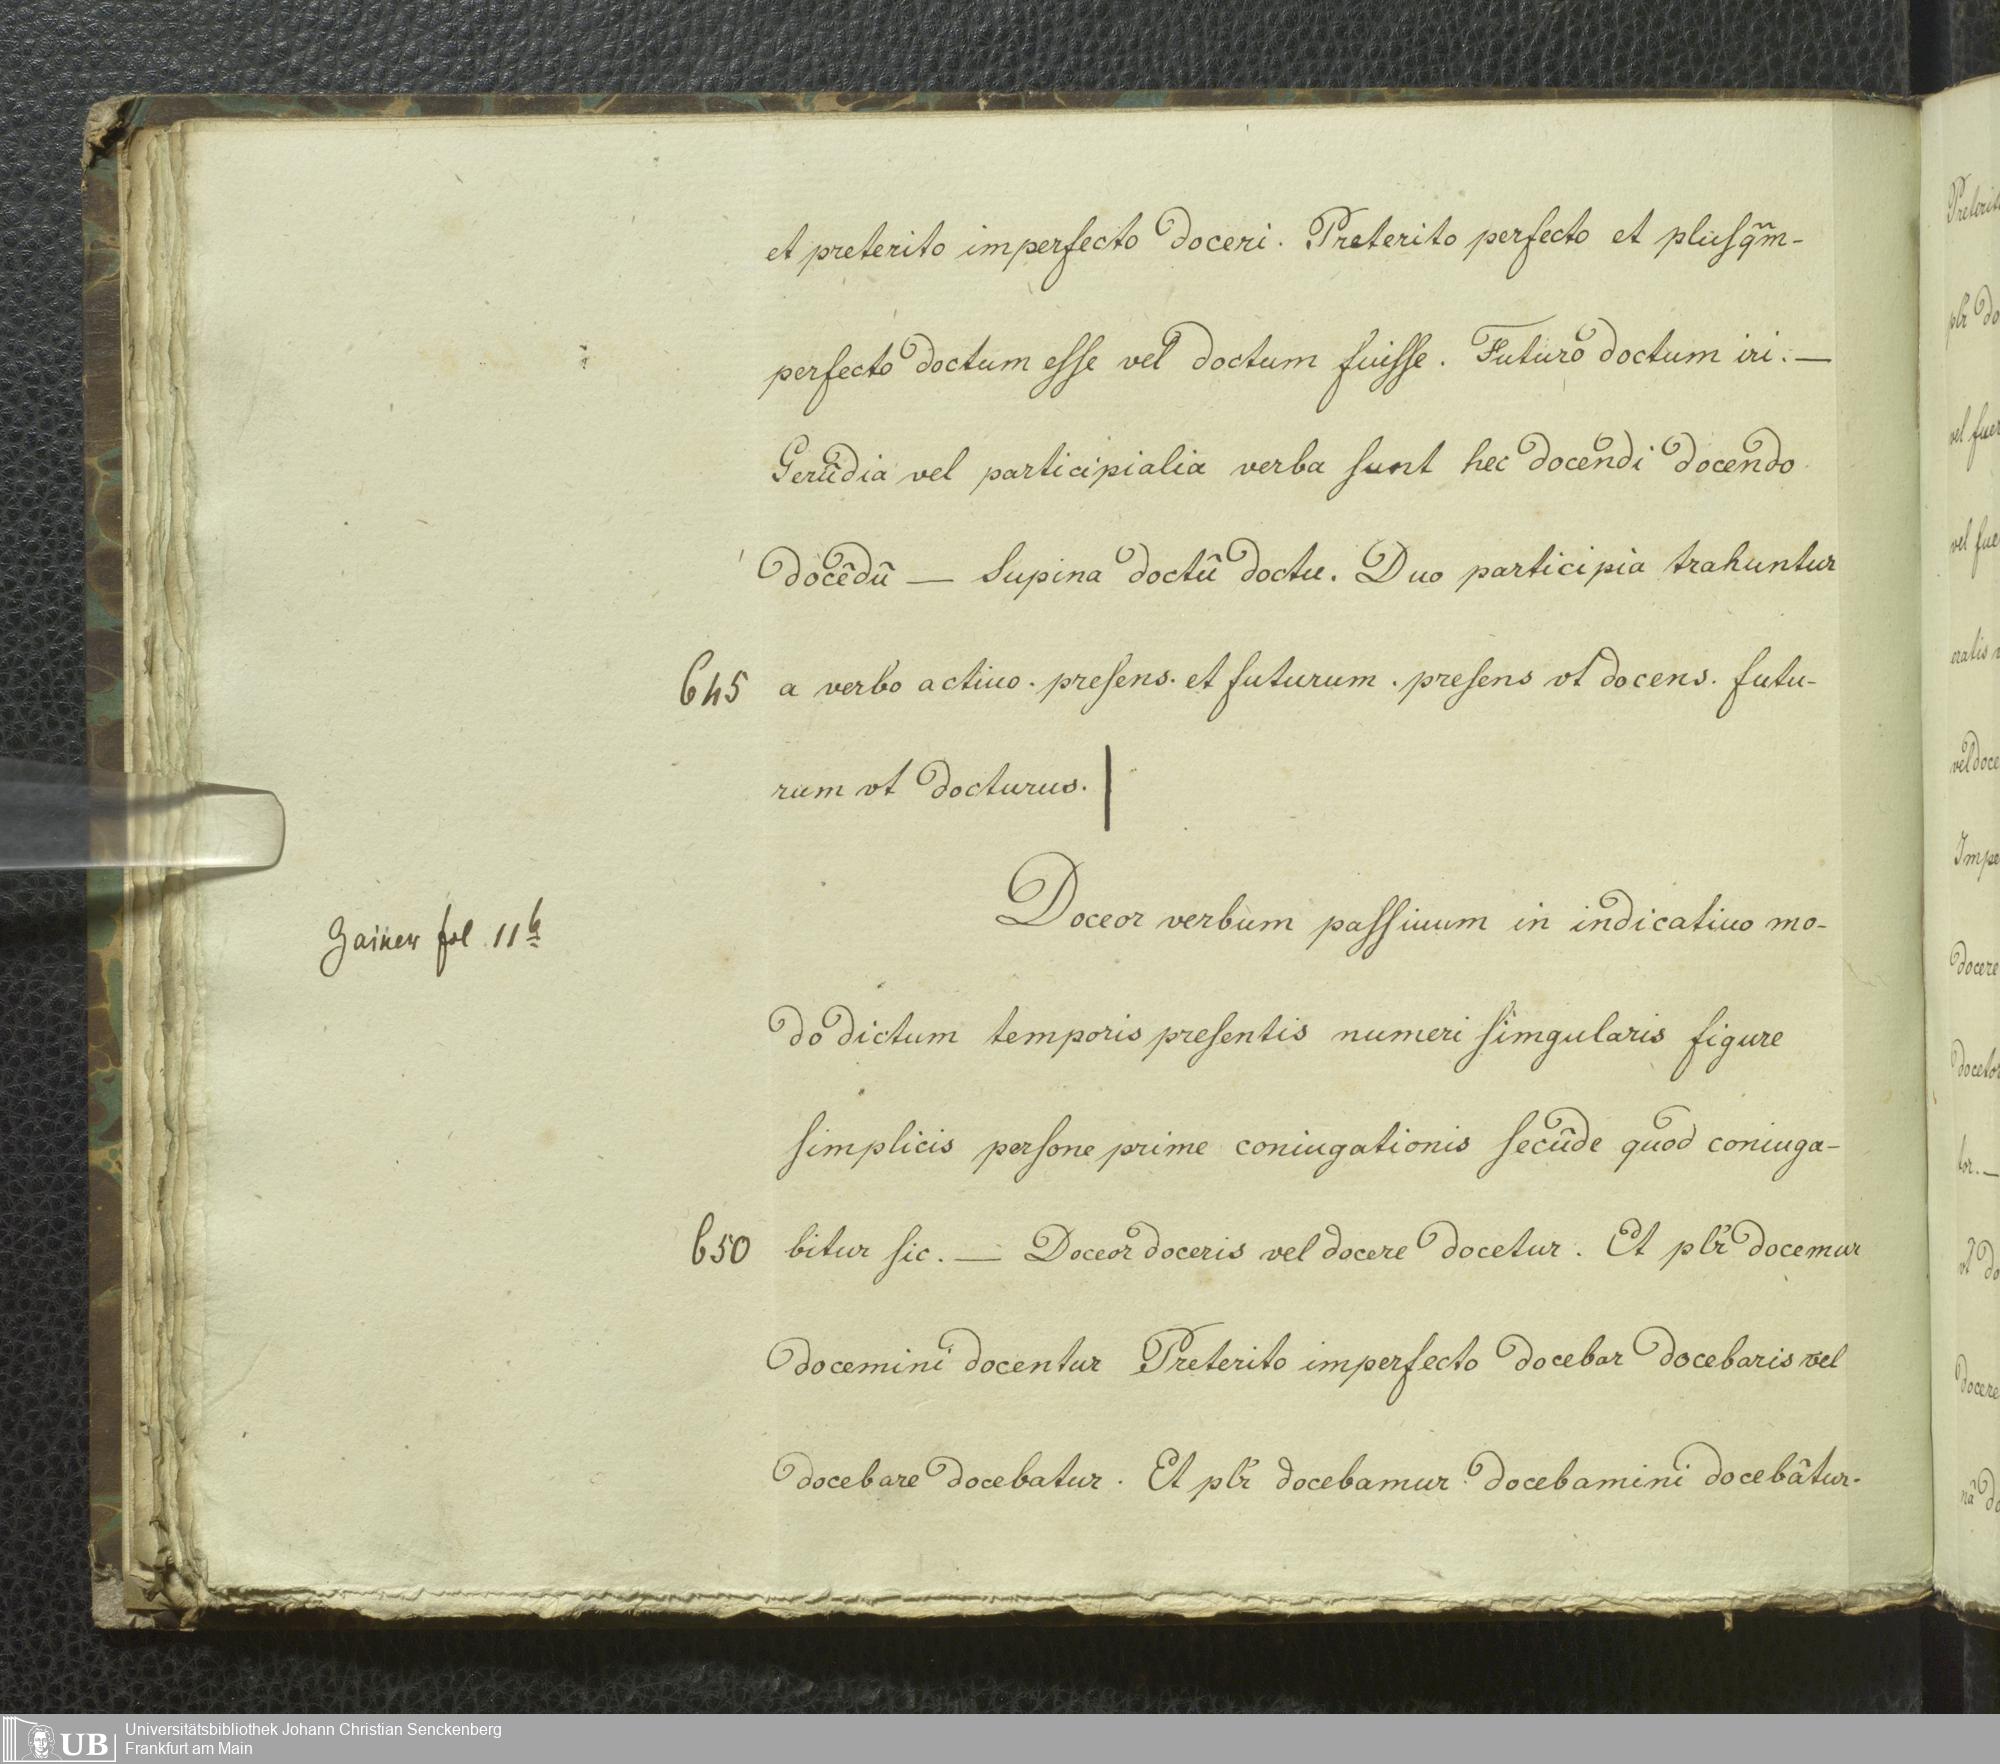 et preterito imperfecto doceri. Preterito perfecto et plusq̃m-
perfecto doctum esse vel doctum fuisse. Futuro doctum iri. —
Gerũdia vel participialia verba sunt hec docendi docendo
docẽdũ — Supina doctũ doctu. Duo participia trahuntur
645 a verbo actiuo. presens. et futurum. presens vt docens. futu-
rum vt docturus. |
Doceor verbum passiuum in indicatiuo mo-
Gainer fol 11b
do dictum temporis presentis numeri simgularis figure
simplicis persone prime coniugationis secũde quod coniuga-
650 bitur sic. — Doceor doceris vel docere docetur. Et plr̃ docemur
docemini docentur Preterito imperfecto docebar docebaris vel
docebare docebatur. Et plr̃ docebamur docebamini docebãtur.
UB
Universitätsbibliothek Johann Christian Senckenberg
Frankfurt am Main